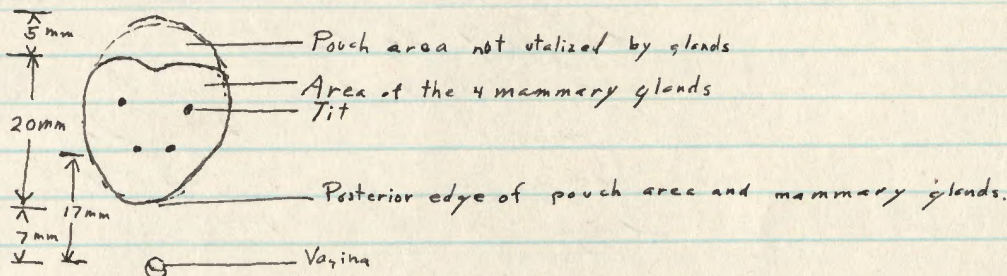 5 mm
Pouch area not utalized by glands
Area of the 4 mammary glands
Tit
20mm
Posterior edge of pouch area and mammary glands.
17mm
7 mm
Vagina